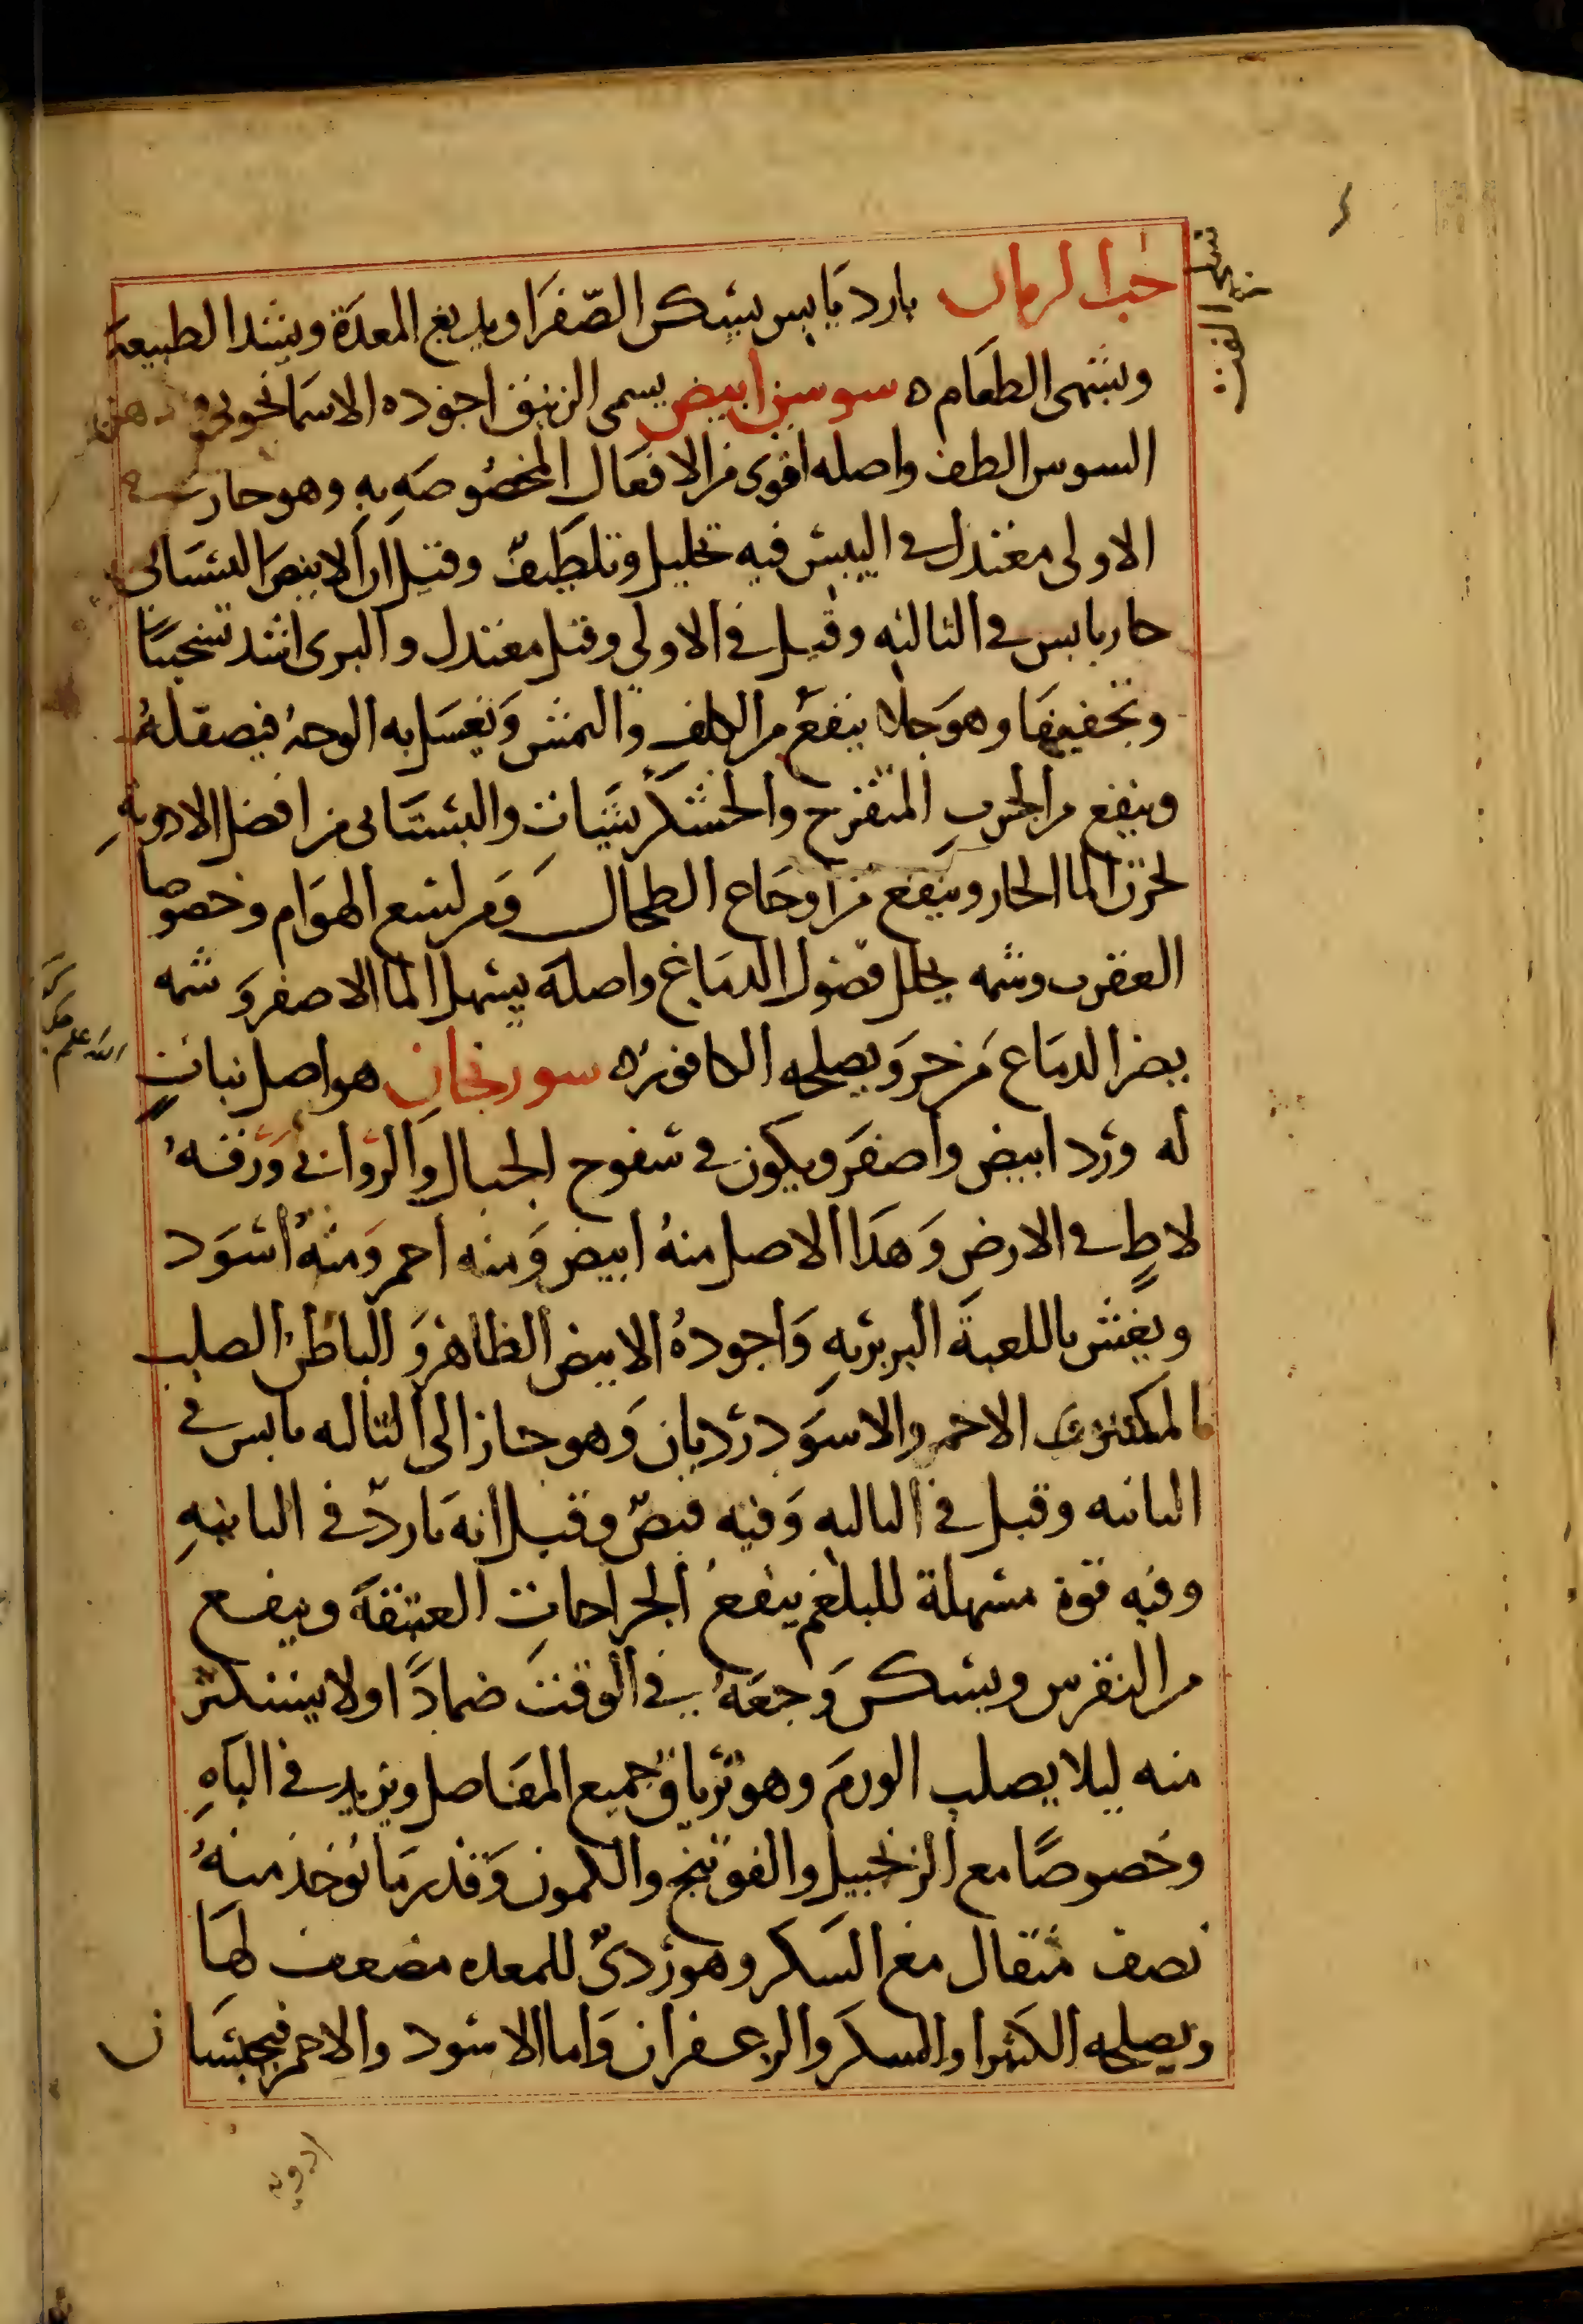 حب الرمان بارد يابس يسكن الصفرا ويدبغ المعدة ويشد الطبيعة
ويشهى الطعام ه سوسن ابيض يسمى الزنبق اجوده الاسمانجونى ودهن
السوسن الطف واصله اقوى من الافعال المخصوصه به وهو حار في
الاولى معتدل في اليبس فيه تحليل وتلطيف وقيل ان الابيض البستانى
حار يابس في الثالثه وقيل في الاولى وقيل معتدل والبرى اشد تسخينا
وتجفيفا وهو جلا ينفع من الكلف والنمش ويغسل به الوجه فيصقله
وينفع من الجرب المتقرح والخشكريشيات والبستانى من افضل الادوية
لحرق الما الحار وينفع من اوجاع الطحال ومن لسع الهوام وخصوصا
العقرب وشمه يحلل فضول الدماغ واصله يسهل الما الاصفر وشمه
يضر الدماغ من حر ويصلحه الكافور ه سورنجان هو اصل نبات
له ورد ابيض واصفر ويكون في سفوح الجبال والروابى وورقه
لاط في الارض وهذا الاصل منه ابيض ومنه احمر ومنه اسود
ويغش باللعبة البربريه واجوده الابيض الظاهر والباطن الصلب
المكسر الاحمر والاسود رديان وهو حار الى الثالثه يابس في
الثانيه وقيل في الثالثه وفيه قبض وقيل انه بارد في الثانيه
وفيه قوة مسهلة للبلغم ينفع الجراحات العتيقة وينفع
من النقرس ويسكن وجعه في الوقت ضمادا ولا يستكثر
منه ليلا يصلب الورم وهو ترياق جميع المفاصل ويزيد في الباه
وخصوصا مع الزنجبيل والفوتنج والكمون وقدر ما يؤخذ منه
نصف مثقال مع السكر وهو ردى للمعده مضعف لها
ويصلحه الكثيرا والسكر والزعفران واما الاسود والاحمر فيحبسان
ادوية